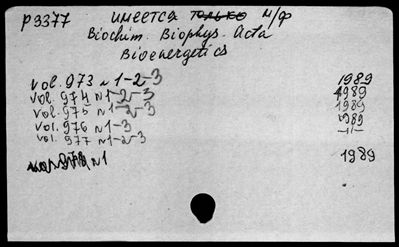 р3377 имеется только м/ф
Biochim. Biophys. Acta
Bioenergetics
vol. 973 n 1-2-3 1989
vol. 974 n 1-2-3 1989
vol. 975 n 1-2-3 1989
vol. 976 n 1-3 1989
vol. 977 n 1-2-3 -11-
n 1 1989